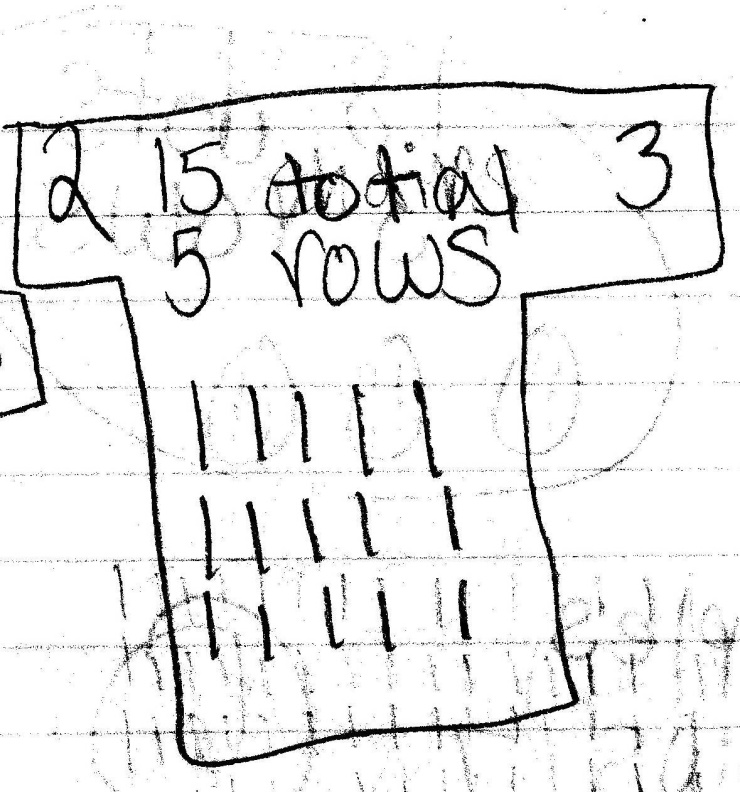 2 15 total 3
5 rows